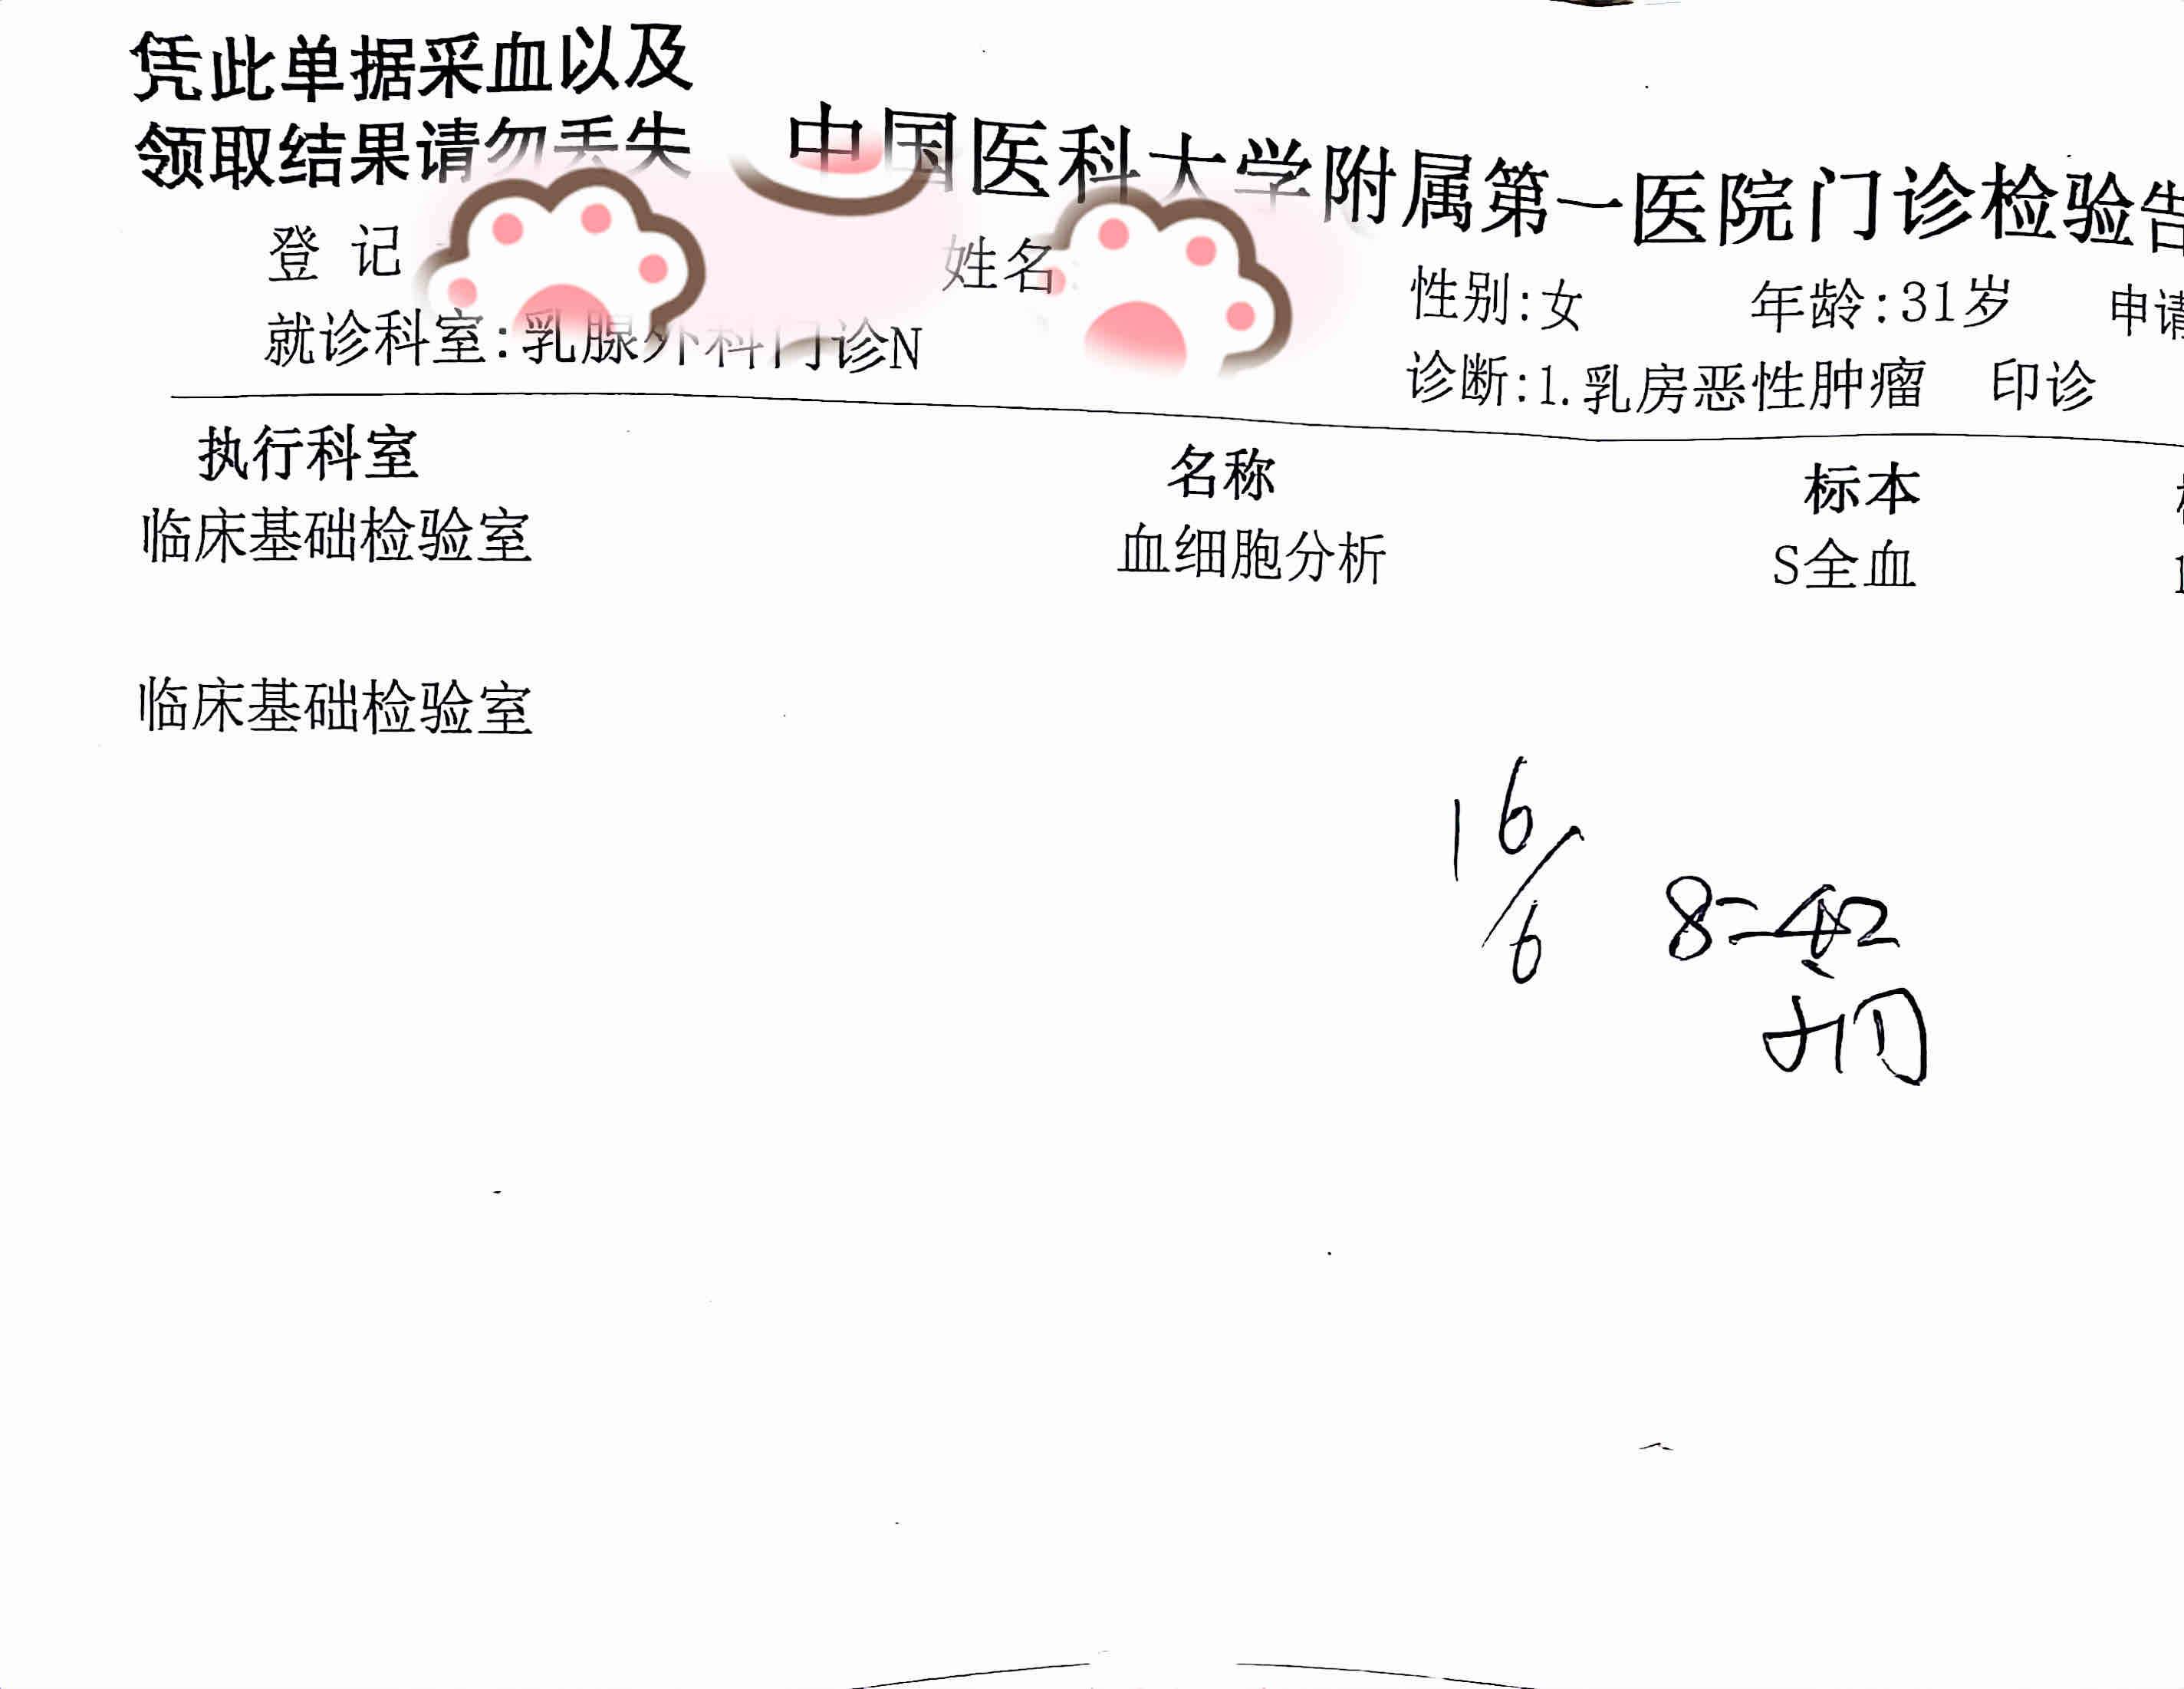 凭此单据采血以及
领取结果请勿丢失
中国医科大学附属第一医院门诊检验告
登 记
姓名
性别:女 年龄:31岁 申请
就诊科室:乳腺外科门诊N
诊断:1.乳房恶性肿瘤 印诊
执行科室 名称 标本
临床基础检验室 血细胞分析 S全血 1
临床基础检验室
16/6